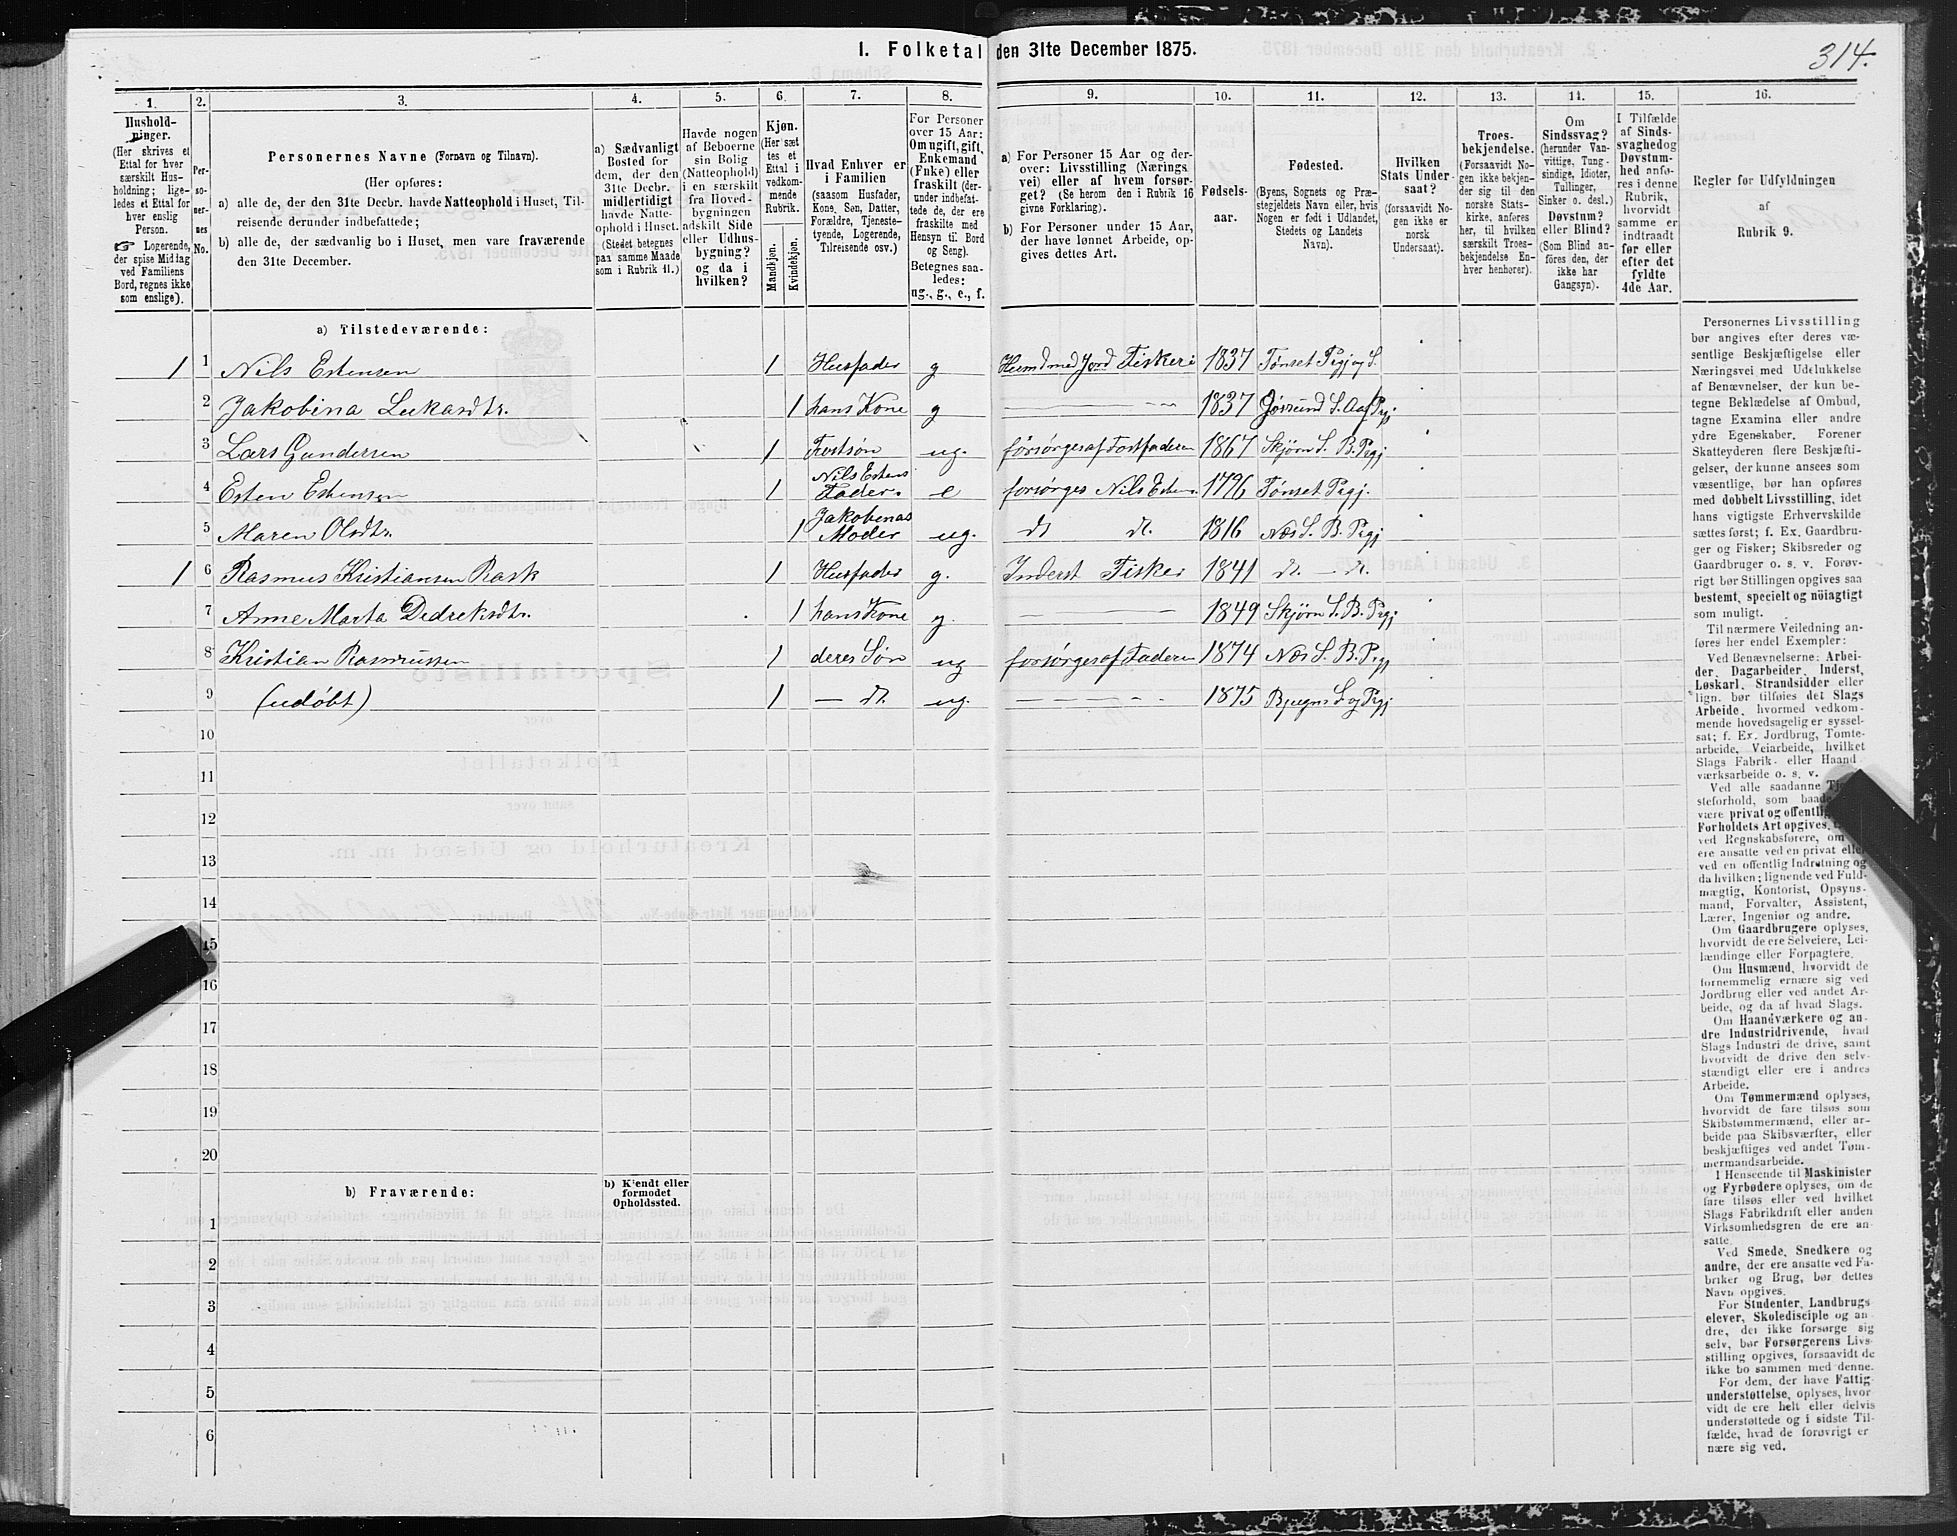 1. Folketal den 31te December 1875.
314.
1.
Hushold-
ninger.
(Her skrives et
Ettal for hver
særskilt Hus-
holdning; lige-
ledes et Ettal for
hver enslig
Person.
☞ Logerende,
der spise Middag
ved Familiens
Bord, regnes ikke
som enslige).
2.
Per-
so-
ner-
nes
No.
3.
Personernes Navne (Fornavn og Tilnavn).
(Her opføres:
a) alle de, der den 31te Decbr. havde Natteophold i Huset, Til-
reisende derunder indbefattede;
b) alle de, der sædvanlig bo i Huset, men vare fraværende
den 31te December.
4.
a) Sædvanligt
Bosted for
dem, der den
31te Decbr.
midlertidigt
havde Natte-
ophold i Huset.
(Stedet betegnes
paa samme Maade
som i Rubrik 11.)
5.
Havde nogen
af Beboerne
sin Bolig
(Natteophold)
i en særskilt
fra Hoved-
bygningen
adskilt Side
eller Udhus-
bygning?
og da i
hvilken?
6.
Kjøn.
(Her sæt
tes et
Ettal i
vedkom-
mende
Rubrik.
Mandkjøn.
Kvindekjøn.
7.
Hvad Enhver er
i Familien
(saasom Husfader,
Kone, Søn, Datter,
Forældre, Tjeneste-
tyende, Logerende,
Tilreisende osv.)
8.
For Personer
over 15 Aar:
Om ugift, gift,
Enkemand
(Enke) eller
fraskilt (der-
under indbefat-
tede de, der ere
fraskilte med
Hensyn til Bord
og Seng).
Betegnes saa-
ledes:
ug., g., e., f.
9.
a) For Personer 15 Aar og der-
over: Livsstilling (Nærings
vei) eller af hvem forsør-
get? (Se herom den i Rubrik 16
givne Forklaring).
b) For Personer under 15 Aar,
der have lønnet Arbeide, op-
gives dettes Art.
10.
Fødsels-
aar.
11.
Fødested.
(Byens, Sognets og Præ-
stegjeldets Navn eller, hvis
Nogen er født i Udlandet,
Stedets og Landets
Navn).
12.
Hvilken
Stats Under-
saat?
(forsaavidt No-
gen ikke er
norsk
Undersaat).
13.
Troes-
bekjendelse.
(Forsaavidt No-
gen ikke bekjen-
der sig til den
norske Stats-
kirke, anføres
her, til hvilken
særskilt Troes-
bekjendelse En-
hver henhører).
14.
Om
Sindssvag?
(herunder Van-
vittige, Tung-
sindige, Idioter,
Tullinger,
Sinker o. desl.)
Døvstum?
eller Blind?
(Som Blind an-
føres den, der
ikke har
Gangsyn).
15.
I Tilfælde
af Sinds-
svaghed og
Døvstum-
hed anfø-
res i denne
Rubrik,
hvorvidt
samme er
indtraadt
før eller
efter det
fyldte
4de Aar.
16.
Regler for Udfyldningen
af
Rubrik 9.
a) Tilstedeværende:
1 1 Nils Estensen 1 Husfader g Husmd med Jord Fiskeri 1837 Tønset Pgj og S.
2 Jakobina Lukasdtr. 1 hans Kone g — 1837 Jøssund S. Aafj Pgj
3 Lars Gundersen 1 Fostsøn ug. forsørges af Fostfaderen 1867 Skjørn S. B. Pgj
4 Esten Estensen 1 Nils Estens Fader. e forsørges Nils Estens. 1796 Tønset Pgj.
5 Maren Olsdtr. 1 Jakobinas Moder ug. dt dt. 1816 Næs S. B. Pgj
1 6 Rasmus Kristiansen Rask 1 Husfader g. Inderst Fisker 1841 dt. — dt.
7 Anne Marta Dedreksdtr. 1 hans Kone g. — 1849 Skjørn S. B. Pgj
8 Kristian Rasmussen 1 deres Søn ug forsørges af Faderen 1874 Næs S. B. Pgj
9 (udøbt) 1 — dt. ug. — 1875 Bjugns S. og Pgj
10
11
12
13
14
15
16
17
18
19
20
b) Fraværende:
b) Kjendt eller
formodet
Opholdssted.
1
2
3
4
5
6
Personernes Livsstilling
bør angives efter deres væ-
sentlige Beskjæftigelse eller
Næringsvei med Udelukkelse
af Benævnelser, der kun be-
tegne Beklædelse af Ombud,
tagne Examina eller andre
ydre Egenskaber. Forener
Skatteyderen flere Beskjæfti-
gelser, der kunne ansees som
væsentlige, bør han opføres
med dobbelt Livsstilling, idet
hans vigtigste Erhvervskilde
sættes først; f. Ex. Gaardbru-
ger og Fisker; Skibsreder og
Gaardbruger o. s. v. Forøv-
rigt bør Stillingen opgives saa
bestemt, specielt og nöiagtigt
som muligt.
Til nærmere Veiledning an-
føres her endel Exempler:
Ved Benævnelserne: Arbei-
der, Dagarbeider, Inderst,
Løskarl, Strandsidder eller
lign. bør tilføies det Slags
Arbeide, hvormed vedkom-
mende hovedsagelig er syssel-
sat; f. Ex. Jordbrug, Tomte-
arbeide, Veiarbeide, hvilket
Slags Fabrik- eller Haand
værksarbeide o. s. v.
Ved alle saadanne
steforhold, som
være privat og offentlig
Forholdets Art opgives,
ved Regnskabsførere, om
ere ansatte ved en privat eller
ved en offentlig Indretning og
da hvilken; lignende ved Fuld-
mægtig, Kontorist, Opsyns-
mand, Forvalter, Assistent,
Lærer, Ingeniør og andre.
Om Gaardbrugere oplyses,
hvorvidt de ere Selveiere, Lei-
lændinge eller Forpagtere.
Om Husmænd, hvorvidt de
fornemmelig ernære sig ved
Jordbrug eller ved andet Ar-
beide, og da af hvad Slags.
Om Haandværkere og an-
dre Industridrivende, hvad
Slags Industri de drive, samt
hvorvidt de drive den selv-
stændigt eller ere i andres
Arbeide.
Om Tømmermænd oplyses,
hvorvidt de fare tilsøs som
Skibstømmermænd, eller ar-
beide paa Skibsværfter, eller
beskjæftiges ved andet Tøm-
mermandsarbeide.
I Henseende til Maskinister
og Fyrbødere oplyses, om de
fare tilsøs eller ved hvilket
Slags Fabrikdrift eller anden
Virksomhedsgren de ere an-
satte.
Ved Smede, Snedkere og
andre, der ere ansatte ved Fa-
briker og Brug, bør dettes
Navn opgives.
For Studenter, Landbrugs
elever, Skoledisciple og an-
dre, der ikke forsørge sig
selv, bør Forsørgerens Livs-
stilling opgives, forsaavidt de
ikke bo sammen med denne.
For dem, der have Fattig-
understøttelse, oplyses, hvor
vidt de ere helt eller delvis
understøttede og i sidste Til-
fælde, hvad de forøvrigt er
nære sig ved.